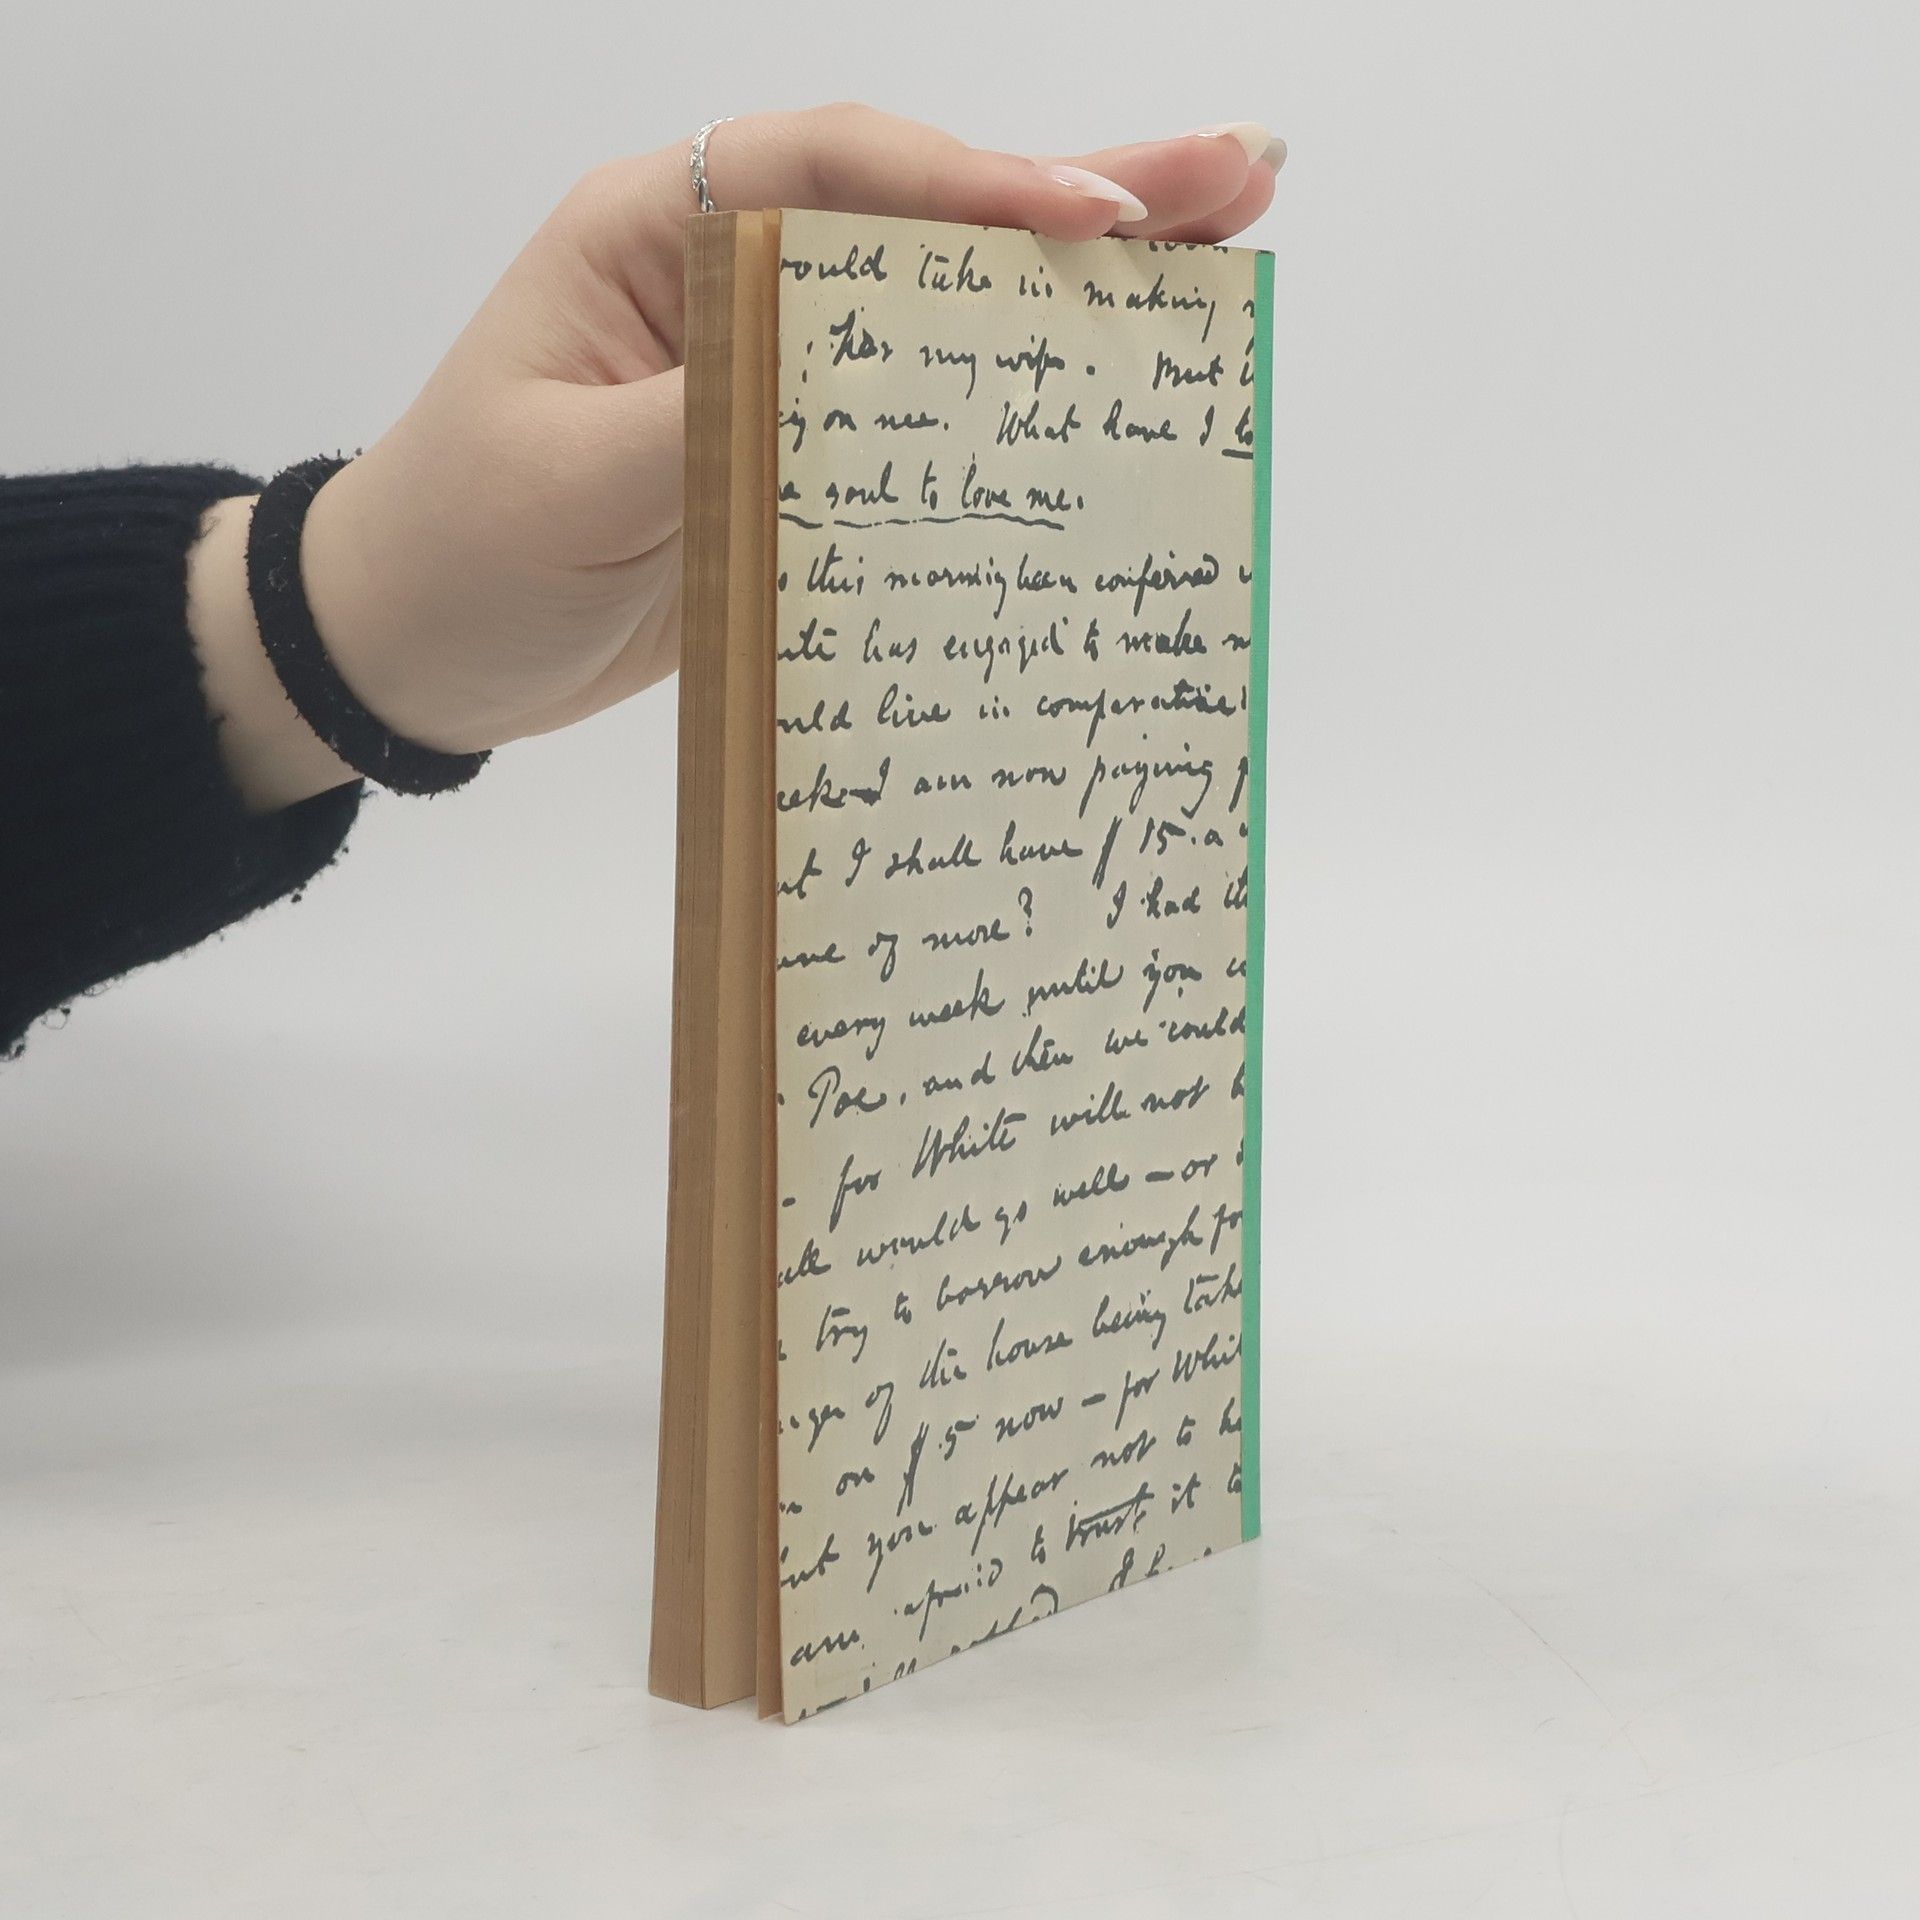 would take in making
my wife. But
on me. What have I to
soul to love me.
this morning been conferred
has engaged to make
live in comparative
I am now paying
I shall have $15 a
of more? I had
every week until you
Poe, and then we could
– for White will not
all would go well – or
try to borrow enough for
of the house being take
on $5 now – for Whit
but you appear not to
am afraid to trust it to